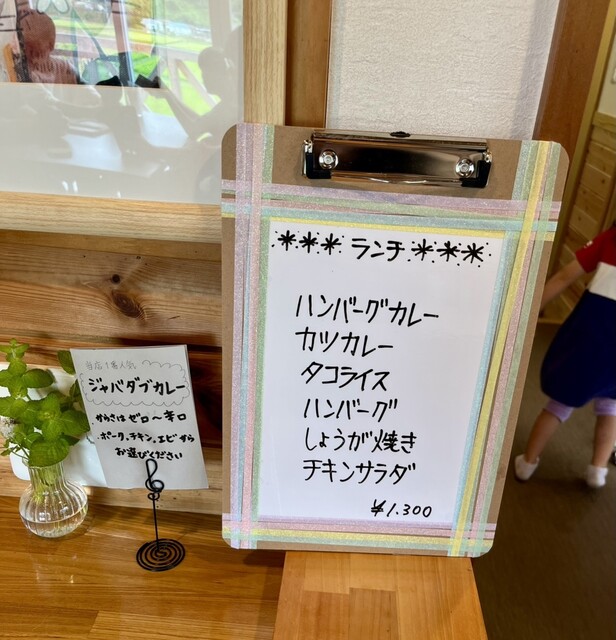 *** ランチ ***
ハンバーグカレー
カツカレー
タコライス
ハンバーグ
しょうが焼き
チキンサラダ
¥1.300
当店1番人気
ジャバダブカレー
からさは ゼロ〜辛口
ポーク、チキン、エビ から
お選びください